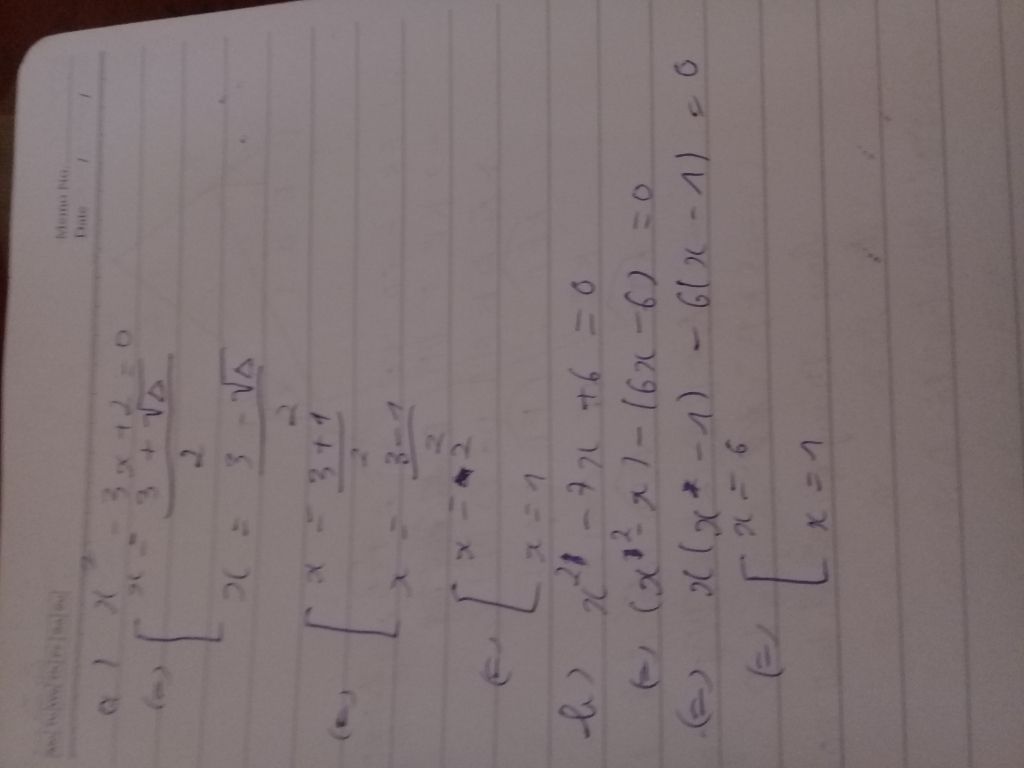 Memo No.
Date / /
a) x² - 3x + 2 = 0
(=) [ x = (3 + √Δ)/2
x = (3 - √Δ)/2
(=) [ x = (3 + 1)/2
x = (3 - 1)/2
(=) [ x = 2
x = 1
b) x² - 7x + 6 = 0
(=) (x² - x) - (6x - 6) = 0
(=) x(x - 1) - 6(x - 1) = 0
(=) [ x = 6
x = 1